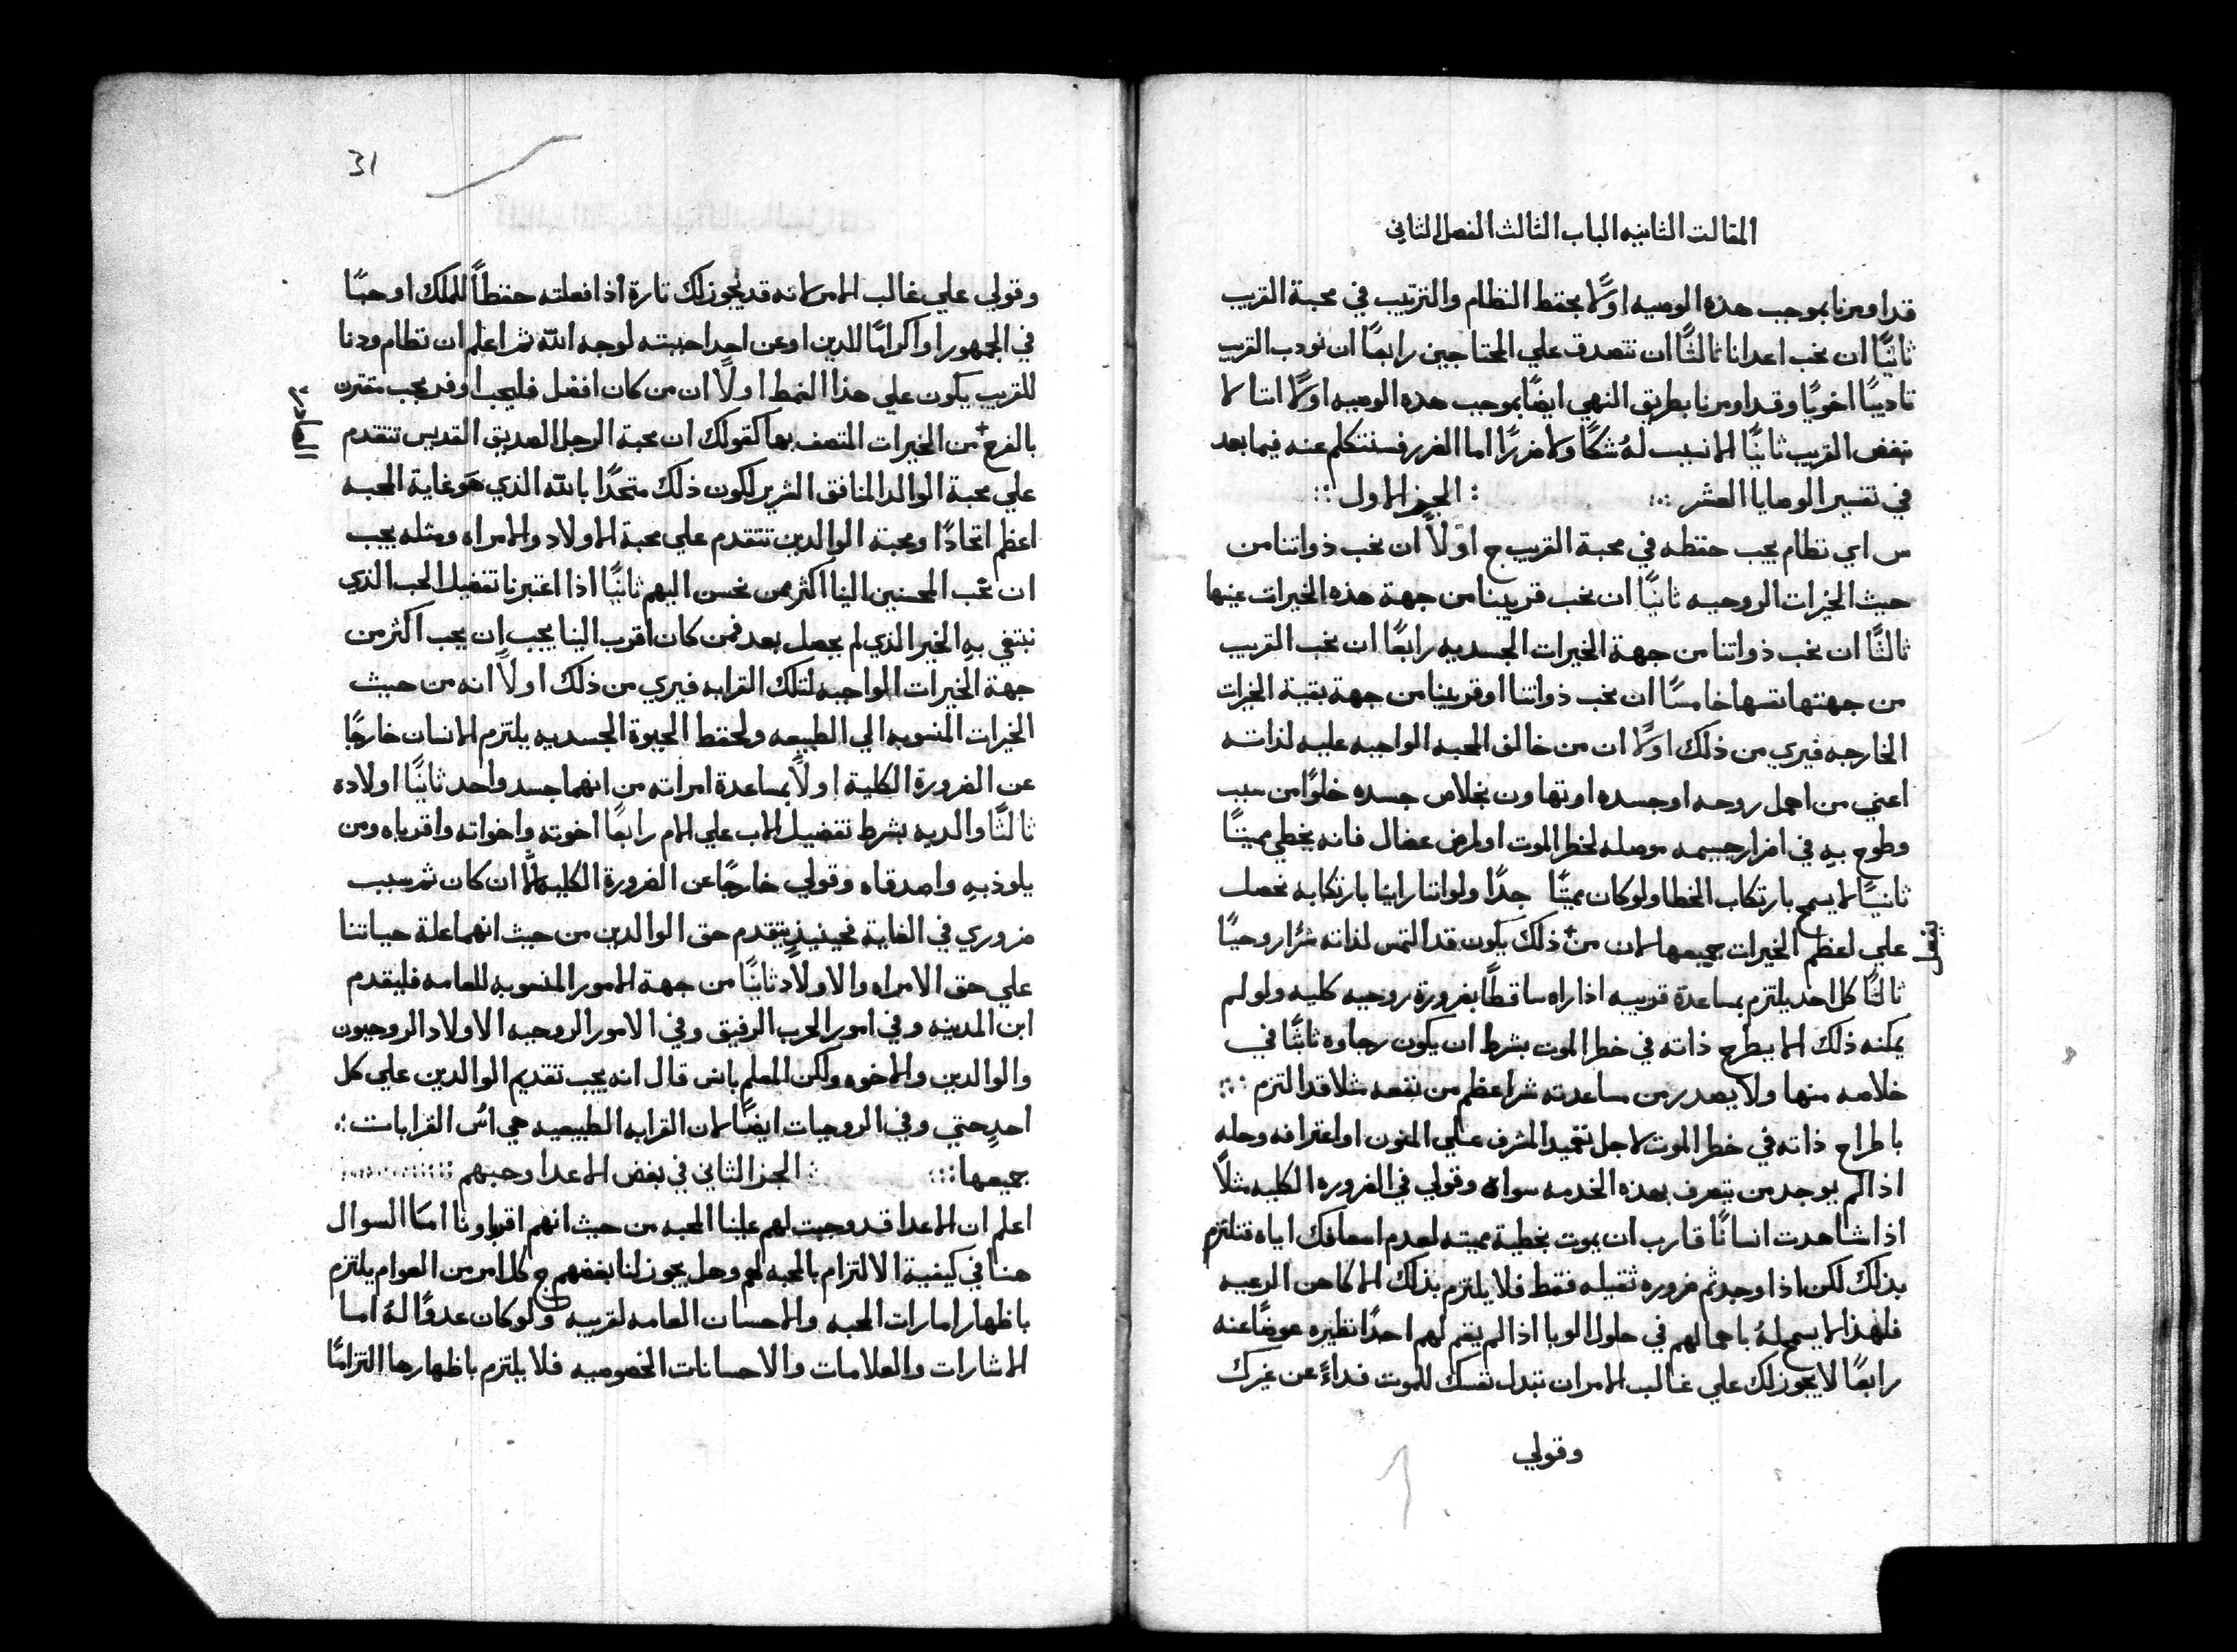 المقالت الثانيه الباب الثالث الفصل الثاني
قد اومرنا بموجب هذه الوصيه اولا بحفظ النظام والترتيب في محبة القريب
ثانيًا ان نحب اعدانا ثالثًا ان نتصدق علي المحتاجين رابعًا ان نودب القريب
تاديبًا اخويًا وقد اومرنا بطريق النهي ايضًا بموجب هذه الوصيه اولًا اننا لا
نبغض القريب ثانيًا الا نسبب لهُ شكًا ولا ضررًا اما الضرر فسنتكلم عنه فيما بعد
في تفسير الوصايا العشر الجز الاول
س اي نظام يجب حفظه في محبة القريب ج اولًا ان نحب ذواتنا من
حيث الخيرات الروحيه ثانيًا ان نحب قريبنا من جهة هذه الخيرات عينها
ثالثًا ان نحب ذواتنا من جهة الخيرات الجسديه رابعًا ان نحب القريب
من جهتها نفسها خامسًا ان نحب ذواتنا او قريبنا من جهة بقية الخيرات
الخارجه فيري من ذلك اولًا ان من خالف المحبه الواجبه عليه لذاته
اعني من اهمل روحه او جسده او تهاون بخلاص جسده خلوًا من سبب
وطوح بهِ في اضرار جسيمه موصله لخطر الموت او لمرض عضال فانه يخطي مميتًا
ثانيًا لا يسمح بارتكاب الخطا ولو كان مميتًا جدًا ولو اننا راينا بارتكابه نحصل
علي اعظم الخيرات جميعها لان من ذلك يكون قد التمس لذاته شرًا روحيًا
ثالثًا كل احد يلتزم بمساعدة قريبه اذا راه ساقطًا بضرورة روحيه كليه ولو لم
يمكنه ذلك الا بطرح ذاته في خطر الموت بشرط ان يكون رجاوه ثابتًا في
خلاصه منها ولا يصدر من مساعدته شر اعظم من نفعه مثلا قد التزم
باطراح ذاته في خطر الموت لاجل تعميد المشرف علي المنون او اعترافه وحله
اذا لم يوجد من يتصرف بهذه الخدمه سواه وقولي في الضروره الكليه مثلًا
اذا شاهدت انسانًا قارب ان يموت بخطية مميته لعدم اسعافك اياه فتلتزم
بذلك لكن اذا وجد ثم ضروره ثقيله فقط فلا يلتزم بذلك الا كاهن الرعيه
فلهذا لا يسمح لهُ باهمالهم في حلول الوبا اذا لم يقم لهم احدًا نظيره عوضًا عنه
رابعًا لا يجوز لك علي غالب الامر ان تبدل نفسك للموت فداءً عن غيرك
وقولي
31
وقولي علي غالب الامر لانه قد يجوز لك تارة اذا فعلته حفظًا للملك او حبًا
في الجمهور او اكرامًا للدين او عن احد احببته لوجه اللّه ثم اعلم ان نظام ودنا
للقريب يكون علي هذا النمط اولًا ان من كان افضل فليحب اوفر بحب مقترن
بالفرح من الخيرات المتصف بها كقولك ان محبة الرجل الصديق القديس تتقدم
علي محبة الوالد المنافق الشرير لكون ذلك متحدًا باللّه الذي هو غاية المحبه
اعظم اتحادًا ومحبة الوالدين تتقدم علي محبة الاولاد والامراه ومثله يجب
ان نحب المحسنين الينا اكثر ممن نحسن اليهم ثانيًا اذا اعتبرنا تفضيل الحب الذي
نبتغي به الخير الذي لم يحصل بعد فمن كان اقرب الينا يجب ان يحب اكثر من
جهة الخيرات الواجبه لتلك القرابه فيري من ذلك اولًا انه من حيث
الخيرات المنسوبه الي الطبيعه ولحفظ الحيوة الجسديه يلتزم الانسان خارجًا
عن الضرورة الكلية اولًا بمساعدة امراته من انهما جسد واحد ثانيًا اولاده
ثالثًا والديه بشرط تفضيل الاب علي الام رابعًا اخوته واخواته واقرباه ومن
يلوذ بهِ واصدقاه وقولي خارجًا عن الضرورة الكليه الّا ان كان ثم سبب
ضروري في الغاية فحينيذٍ يتقدم حق الوالدين من حيث انهما علة حياتنا
علي حق الامراه والاولاد ثانيًا من جهة الامور المنسوبه للعامه فليقدم
ابن المدينه وفي امور الحرب الرفيق وفي الامور الروحيه الاولاد الروحيون
والوالدين والاخوه ولكن المعلم باس قال انه يجب تقديم الوالدين علي كل
احدٍ حتي وفي الروحيات ايضًا لان القرابه الطبيعيه هي اسُ القرابات
جميعها الجز الثاني في بغض الاعدا وحبهم
اعلم ان الاعدا قد وجبت لهم علينا المحبه من حيث انهم اقرباونا امَا السوال
هنا في كيفية الالتزام بالمحبه لهم وهل يجوز لنا بغضهم ج كل امر من العوام يلتزم
باظهار امارات المحبه والاحسان العامه لقريبه ولو كان عدوًا لهُ اما
الاشارات والعلامات والاحسانات الخصوصيه فلا يلتزم باظهارها التزامًا